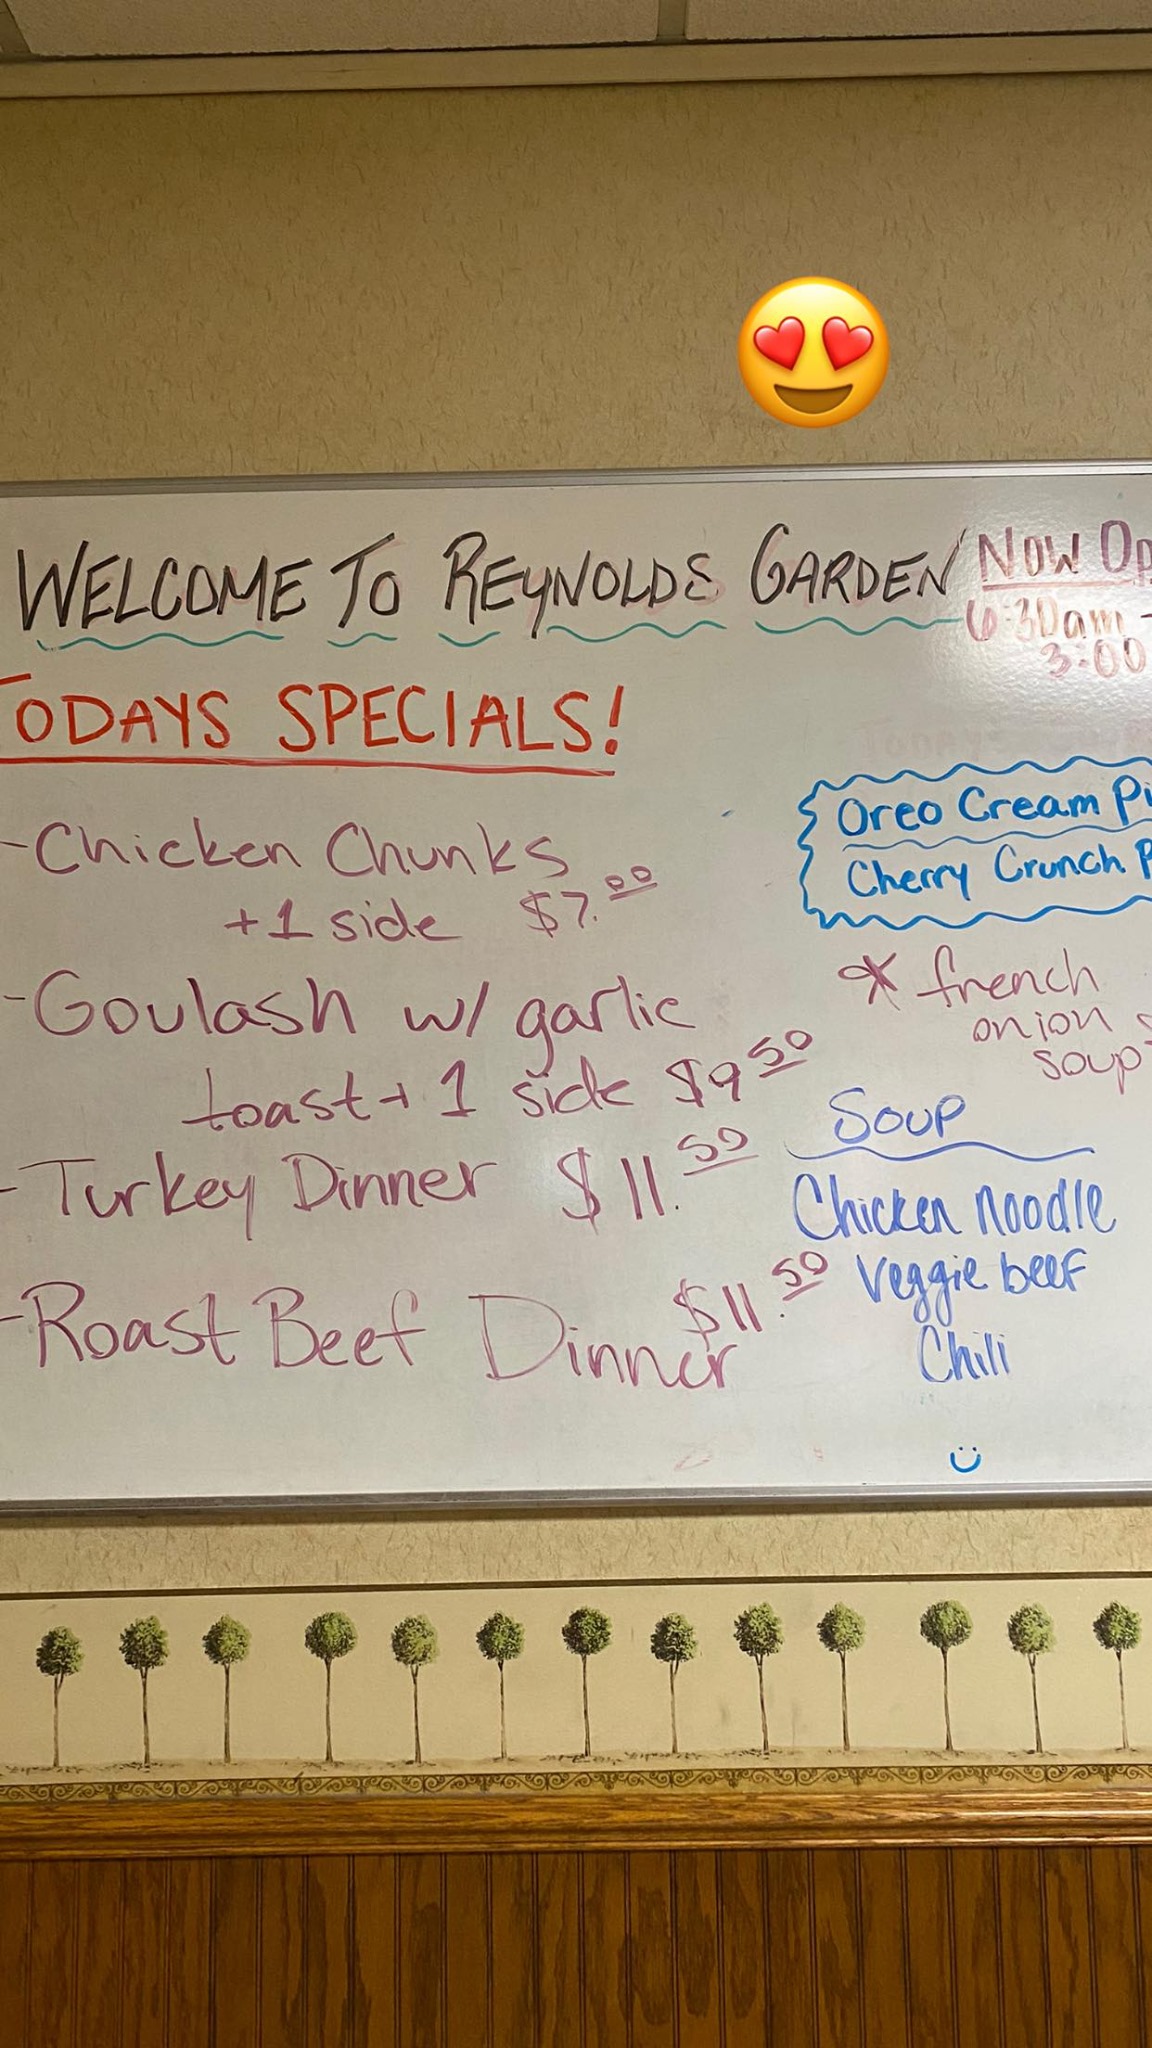 WELCOME TO REYNOLDS GARDEN
NOW Op
6:30am -
3:00
TODAYS SPECIALS!
- Chicken Chunks
+1 side $7.00
- Goulash w/ garlic
toast + 1 side $9.50
- Turkey Dinner $11.50
- Roast Beef Dinner $11.50
Oreo Cream Pi
Cherry Crunch P
* french
onion
soup
Soup
Chicken noodle
Veggie beef
Chili